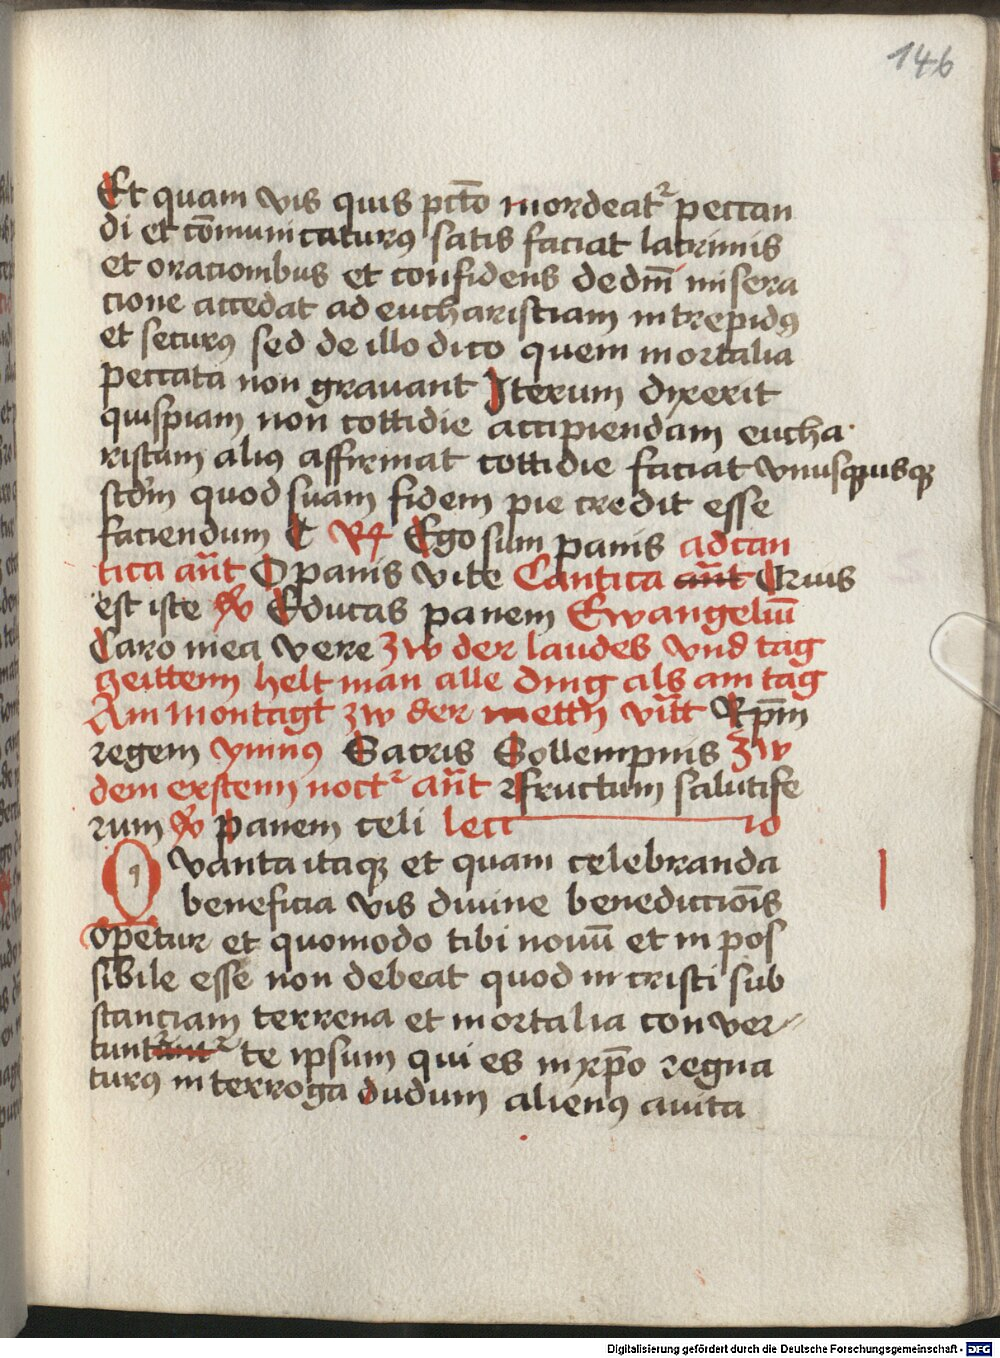 146
Et quam vis quis pctō mordeatᷣ peccan
di et cōmunicaturꝯ satis faciat lacrimis
et oracionibus et confidens de dm̄ misera
cione accedat ad eucharistiam intrepidꝯ
et securꝯ sed de illo dico quem mortalia
peccata non grauant Iterum dyxerit
quispiam non cottidie accipiendam eucha
ristiam aliꝯ affirmat cottidie faciat vnusquisqꝫ
scdm̄ quod suam fidem pie credit esse
faciendum C R Ego sum panis ad can
tica an̄t O panis vite Cantica an̄t Qviis
est iste ꝟ Educas panem Ewangeliū
Caro mea vere Zw der laudes vnd tag
zeittenn helt man alle ding als am tag
Am Montagt zw der mettn̄ vīt̄t Xp̄m
regem ymnꝯ Sacris Sollempniis Zw
dem erstenn noctᷣ an̄t fructum salutife
rum ꝟ Panem celi lecc io
Qvanta itaqꝫ et quam celebranda
beneficia vis diuine benediccōis
opetur et quomodo tibi nouū et in pos
sibile esse non debeat quod in cristi sub
stanciam terrena et mortalia conver
tunt te ipsum qui es in xp̄o regna
turꝯ interroga dudum alienꝯ a vita
Digitalisierung gefördert durch die Deutsche Forschungsgemeinschaft - DFG